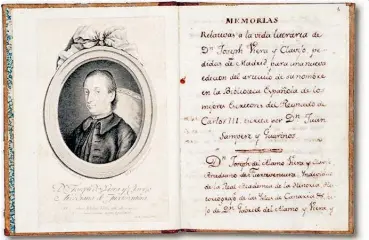 MEMORIAS
Relativas a la vida literaria de
Dn Joseph Viera y Clavijo, pe-
didas de Madrid, para una nueva
edicion del articulo de su nombre
en la Biblioteca Española de los
mejores Escritores del Reynado de
Carlos III. escrita por Dn Juan
Sempere y Guarinos
Dn Joseph del Alamo Viera y Clavi
Arcediano de Fuerteventura, Individuo
de la Real Academia de la Historia, His
toriografo de las Islas de Canaria, hi
jo de Dn Gabriel del Alamo y Viera y
Dn Joseph de Viera y Clavijo